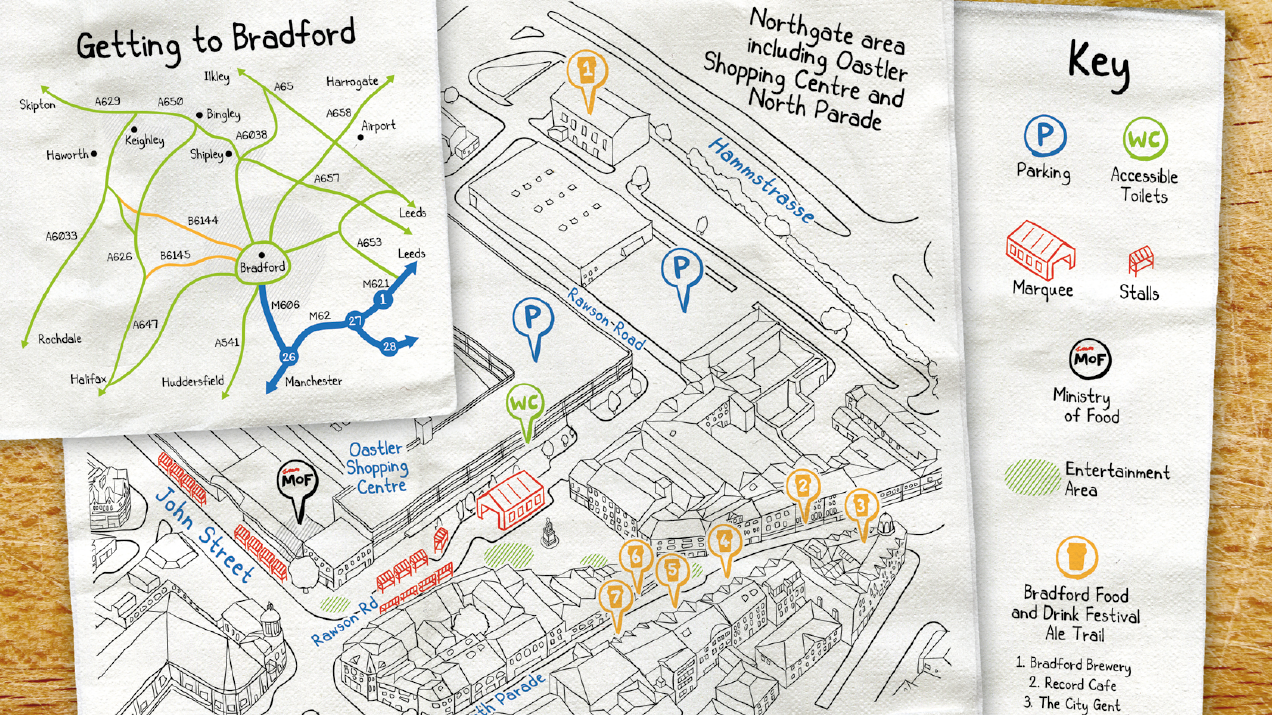 Getting to Bradford
Skipton
A629
A650
Ilkley
A65
Harrogate
Bingley
A658
Airport
Keighley
A6038
Haworth
Shipley
A657
B6144
Leeds
A6033
A626
B6145
A653
Leeds
Bradford
M621
1
M606
M62
27
28
26
Rochdale
A647
A541
Halifax
Huddersfield
Manchester
Northgate area
including Oastler
Shopping Centre and
North Parade
1
Hammstrasse
P
Rawson-Road
P
WC
Oastler
Shopping
Centre
MoF
John Street
2
3
4
6
5
7
Rawson-Rd
th Parade
Key
P
Parking
WC
Accessible
Toilets
Marquee
Stalls
MoF
Ministry
of Food
Entertainment
Area
Bradford Food
and Drink Festival
Ale Trail
1. Bradford Brewery
2. Record Cafe
3. The City Gent